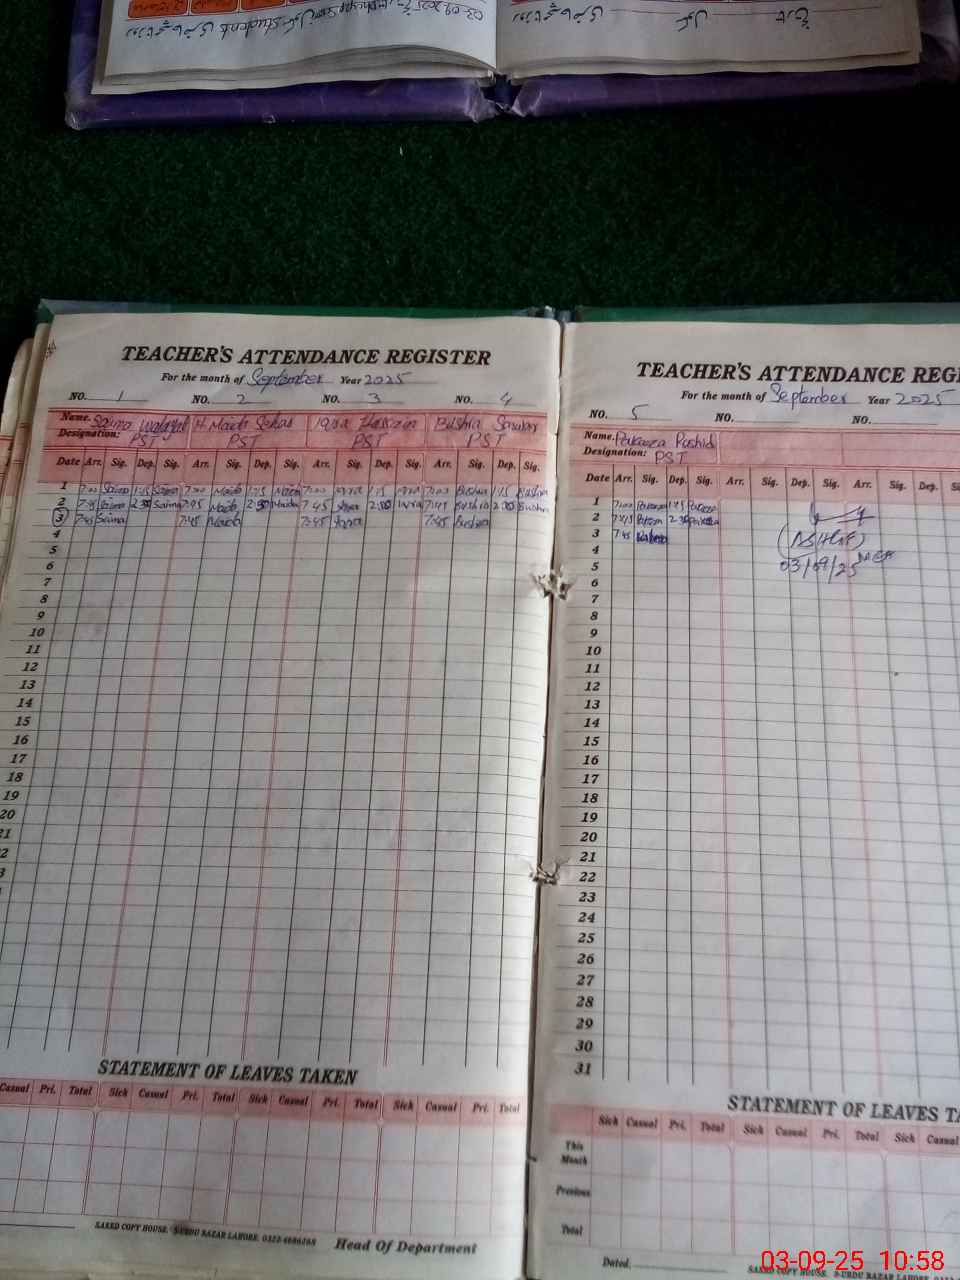 TEACHER'S ATTENDANCE REGISTER
For the month of September Year 2025
NO. 1 NO. 2 NO. 3 NO. 4
Name. Saima H. Maida Iqra Hussain Bushra Sarwar
Designation: PST PST PST PST
Date Arr. Sig. Dep. Sig. Arr. Sig. Dep. Sig. Arr. Sig. Dep. Sig. Arr. Sig. Dep. Sig.
1 7:00 Saima 1:15 Saima 7:00 Maida 1:15 Maida 7:00 Iqra 1:15 Iqra 7:00 Bushra 1:15 Bushra
2 7:45 Saima 2:30 Saima 7:45 Maida 2:30 Maida 7:45 Iqra 2:30 Iqra 7:45 Bushra 2:30 Bushra
3 7:45 Saima 7:45 Maida 7:45 Iqra 7:45 Bushra
4
5
6
7
8
9
10
11
12
13
14
15
16
17
18
19
20
21
2
3
STATEMENT OF LEAVES TAKEN
Casual Pri. Total Sick Casual Pri. Total Sick Casual Pri. Total Sick Casual Pri. Total
SAEED COPY HOUSE. 9-URDU BAZAR LAHORE. 0322-4686268
Head Of Department
TEACHER'S ATTENDANCE REGI
For the month of September Year 2025
NO. 5 NO. NO.
Name. Rashid
Designation: PST
Date Arr. Sig. Dep. Sig. Arr. Sig. Dep. Sig. Arr. Sig. Dep. Sig.
1 7:00 1:15
2 7:45 2:30
3 7:45
4
5
6
7
8
9
10
11
12
13
14
15
16
17
18
19
20
21
22
23
24
25
26
27
28
29
30
31
03/09/25
STATEMENT OF LEAVES TA
Sick Casual Pri. Total Sick Casual Pri. Total Sick Casual
This Month
Previous
Total
Dated.
SAEED COPY HOUSE. 9-URDU BAZAR LAHORE.
03-09-25 10:58